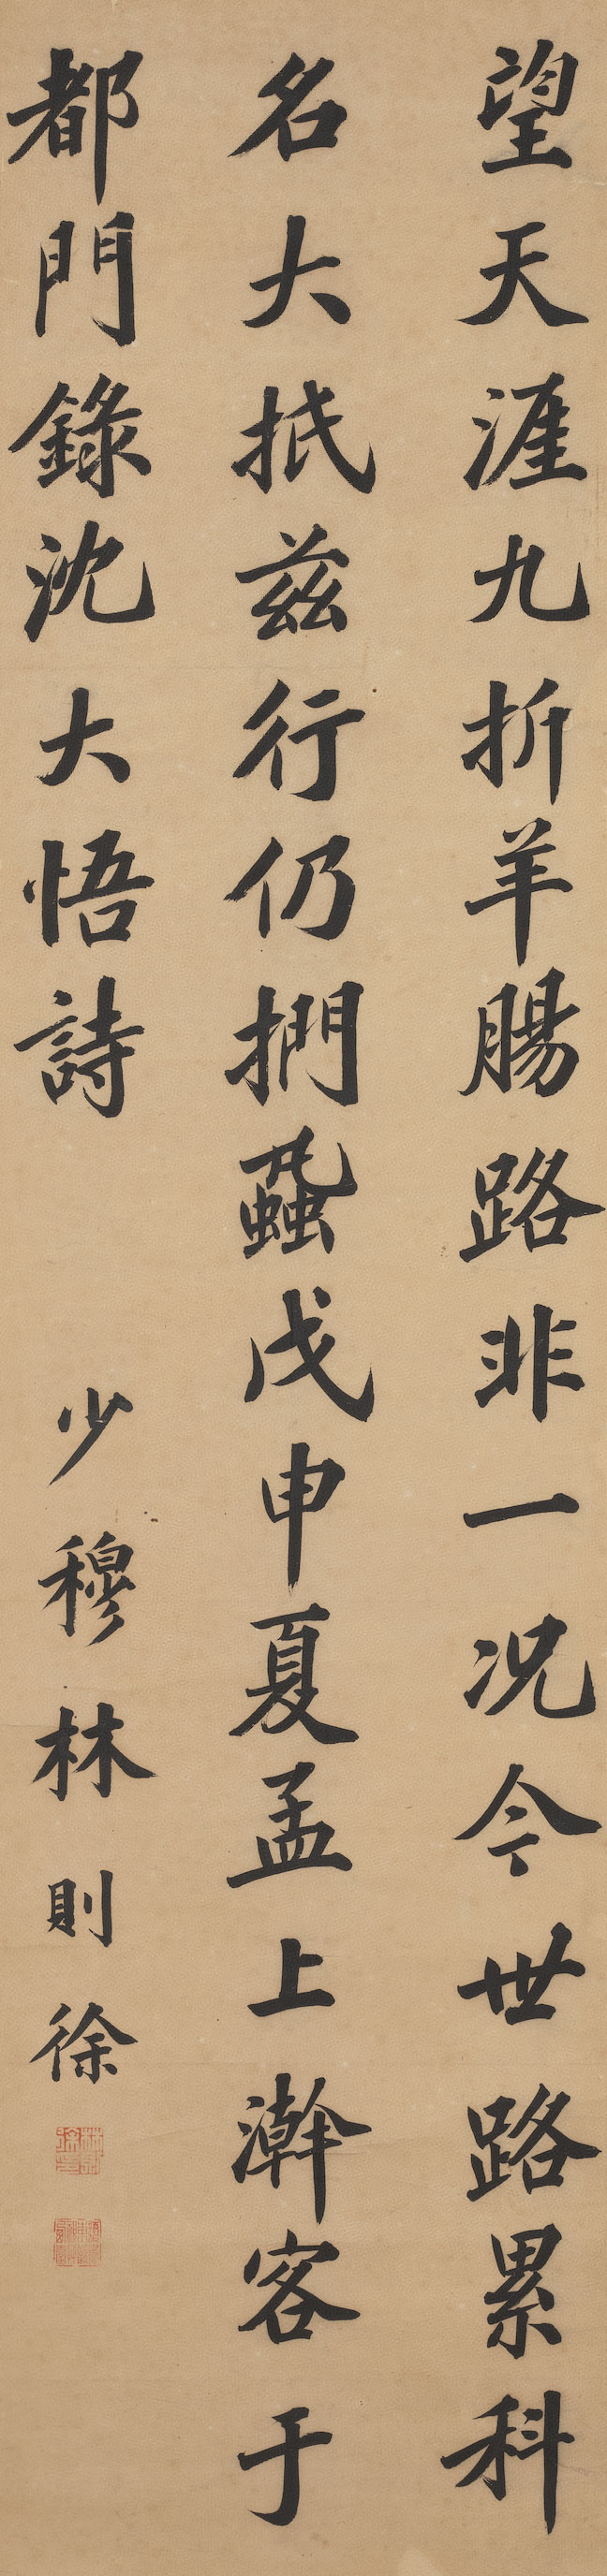 望天涯九折羊腸路非一況今世路累科
名大抵茲行仍捫蝨戊申夏孟上澣客于
都門錄沈大悟詩
少穆林則徐